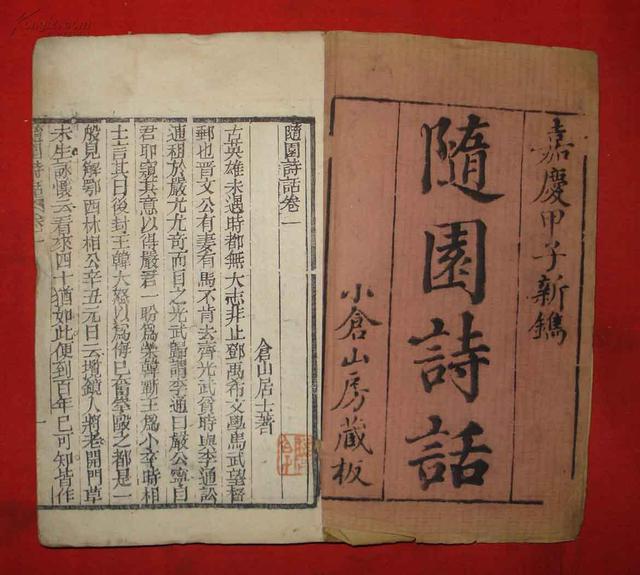 嘉慶甲子新鐫
隨園詩話
小倉山房藏板
隨園詩話卷一
倉山居士著
古英雄未遇時都無大志非止鄧禹希文學馬武望督
郵也晉文公有妻有馬不肯去齊光武貧時與李通訟
逋租於嚴尤尤奇而目之光武歸謂李通曰嚴公寧目
君耶窺其意以得嚴君一盼為榮韓蘄王為小卒時相
士言其日後封王韓大怒以為侮己奮拳毆之都是一
般見解鄂西林相公辛丑元日云攬鏡人將老開門草
未生詠懷云看來四十猶如此便到百年已可知皆作
隨園詩話 卷一